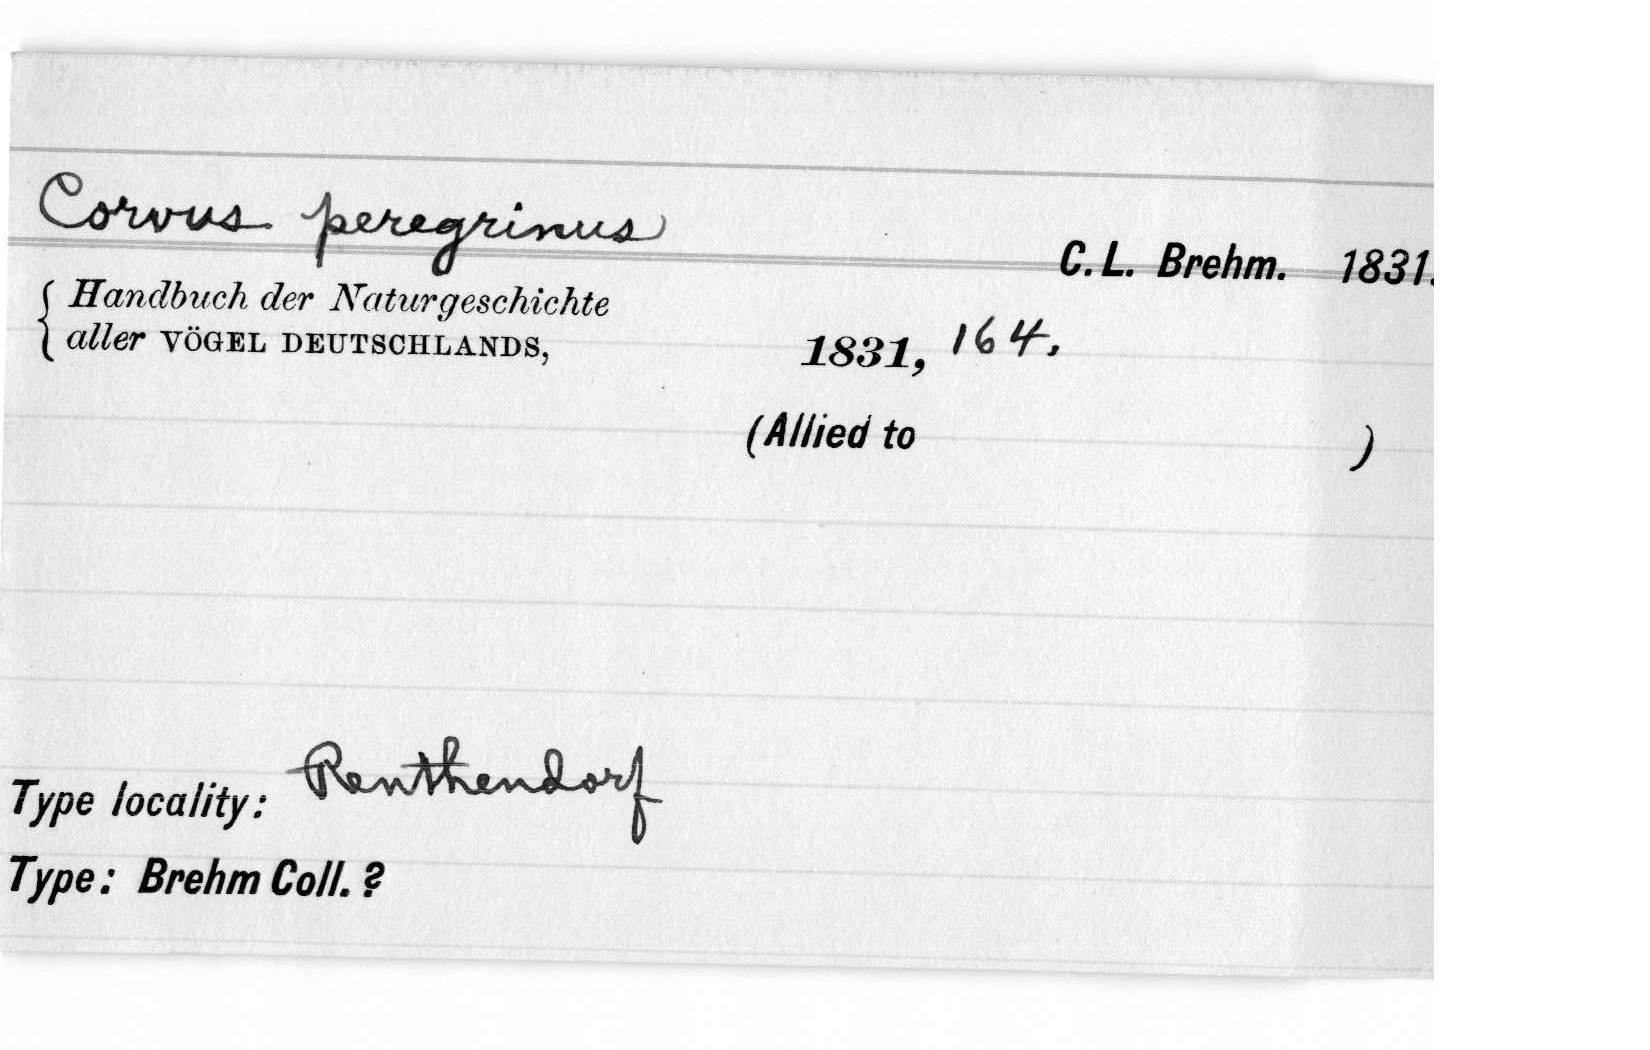 Corvus peregrinus
C. L. Brehm. 1831.
{ Handbuch der Naturgeschichte
aller VÖGEL DEUTSCHLANDS, 1831, 164.
(Allied to )
Type locality: Renthendorf
Type: Brehm Coll. ?